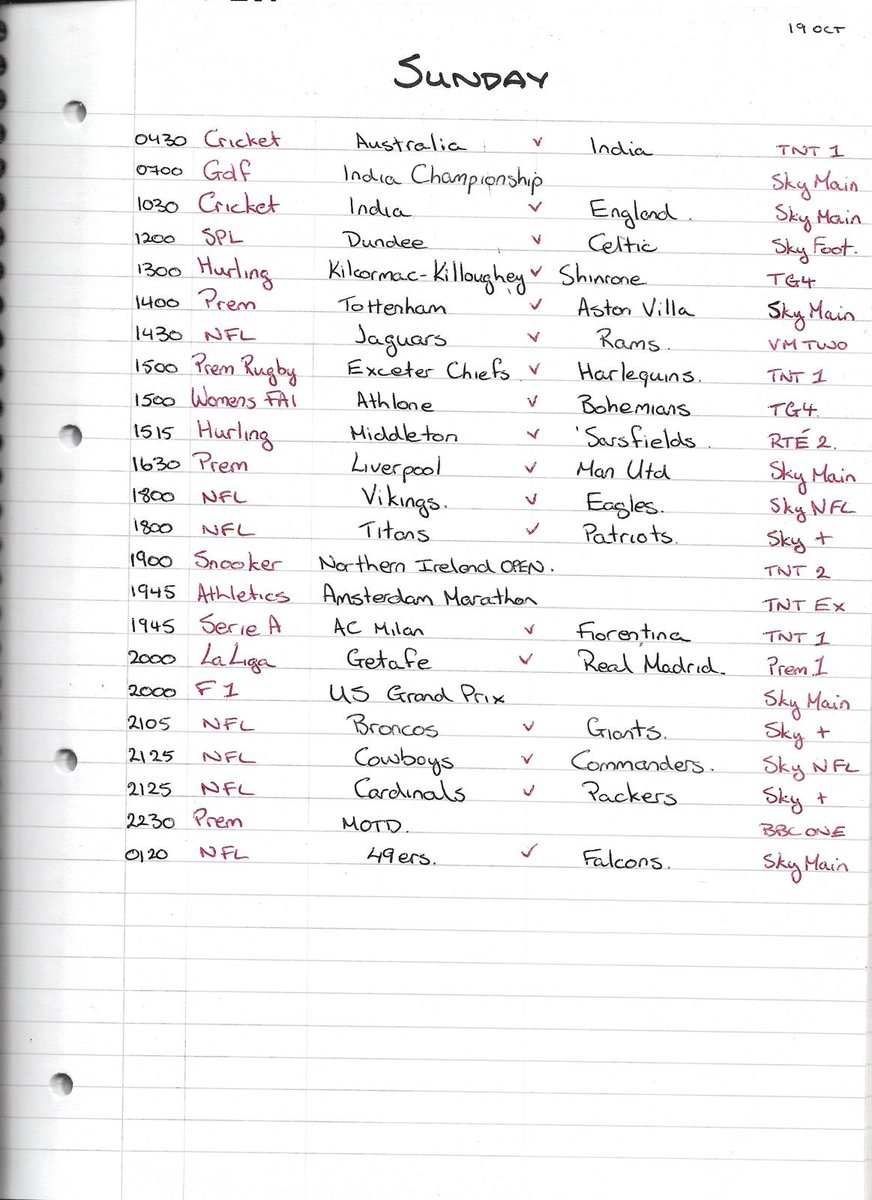 19 OCT
SUNDAY
0430 Cricket Australia v India TNT 1
0700 Golf India Championship Sky Main
1030 Cricket India v England. Sky Main
1200 SPL Dundee v Celtic Sky Foot.
1300 Hurling Kilcormac-Killoughey v Shinrone TG4
1400 Prem Tottenham v Aston Villa Sky Main
1430 NFL Jaguars v Rams. VM TWO
1500 Prem Rugby Exeter Chiefs v Harlequins. TNT 1
1500 Womens FAI Athlone v Bohemians TG4.
1515 Hurling Middleton v 'Sarsfields. RTÉ 2.
1630 Prem Liverpool v Man Utd Sky Main
1800 NFL Vikings. v Eagles. Sky NFL
1800 NFL Titans v Patriots. Sky +
1900 Snooker Northern Ireland OPEN. TNT 2
1945 Athletics Amsterdam Marathon TNT Ex
1945 Serie A AC Milan v Fiorentina TNT 1
2000 La Liga Getafe v Real Madrid. Prem 1
2000 F1 US Grand Prix Sky Main
2105 NFL Broncos v Giants. Sky +
2125 NFL Cowboys v Commanders. Sky NFL
2125 NFL Cardinals v Packers Sky +
2230 Prem MOTD. BBC ONE
0120 NFL 49ers. v Falcons. Sky Main